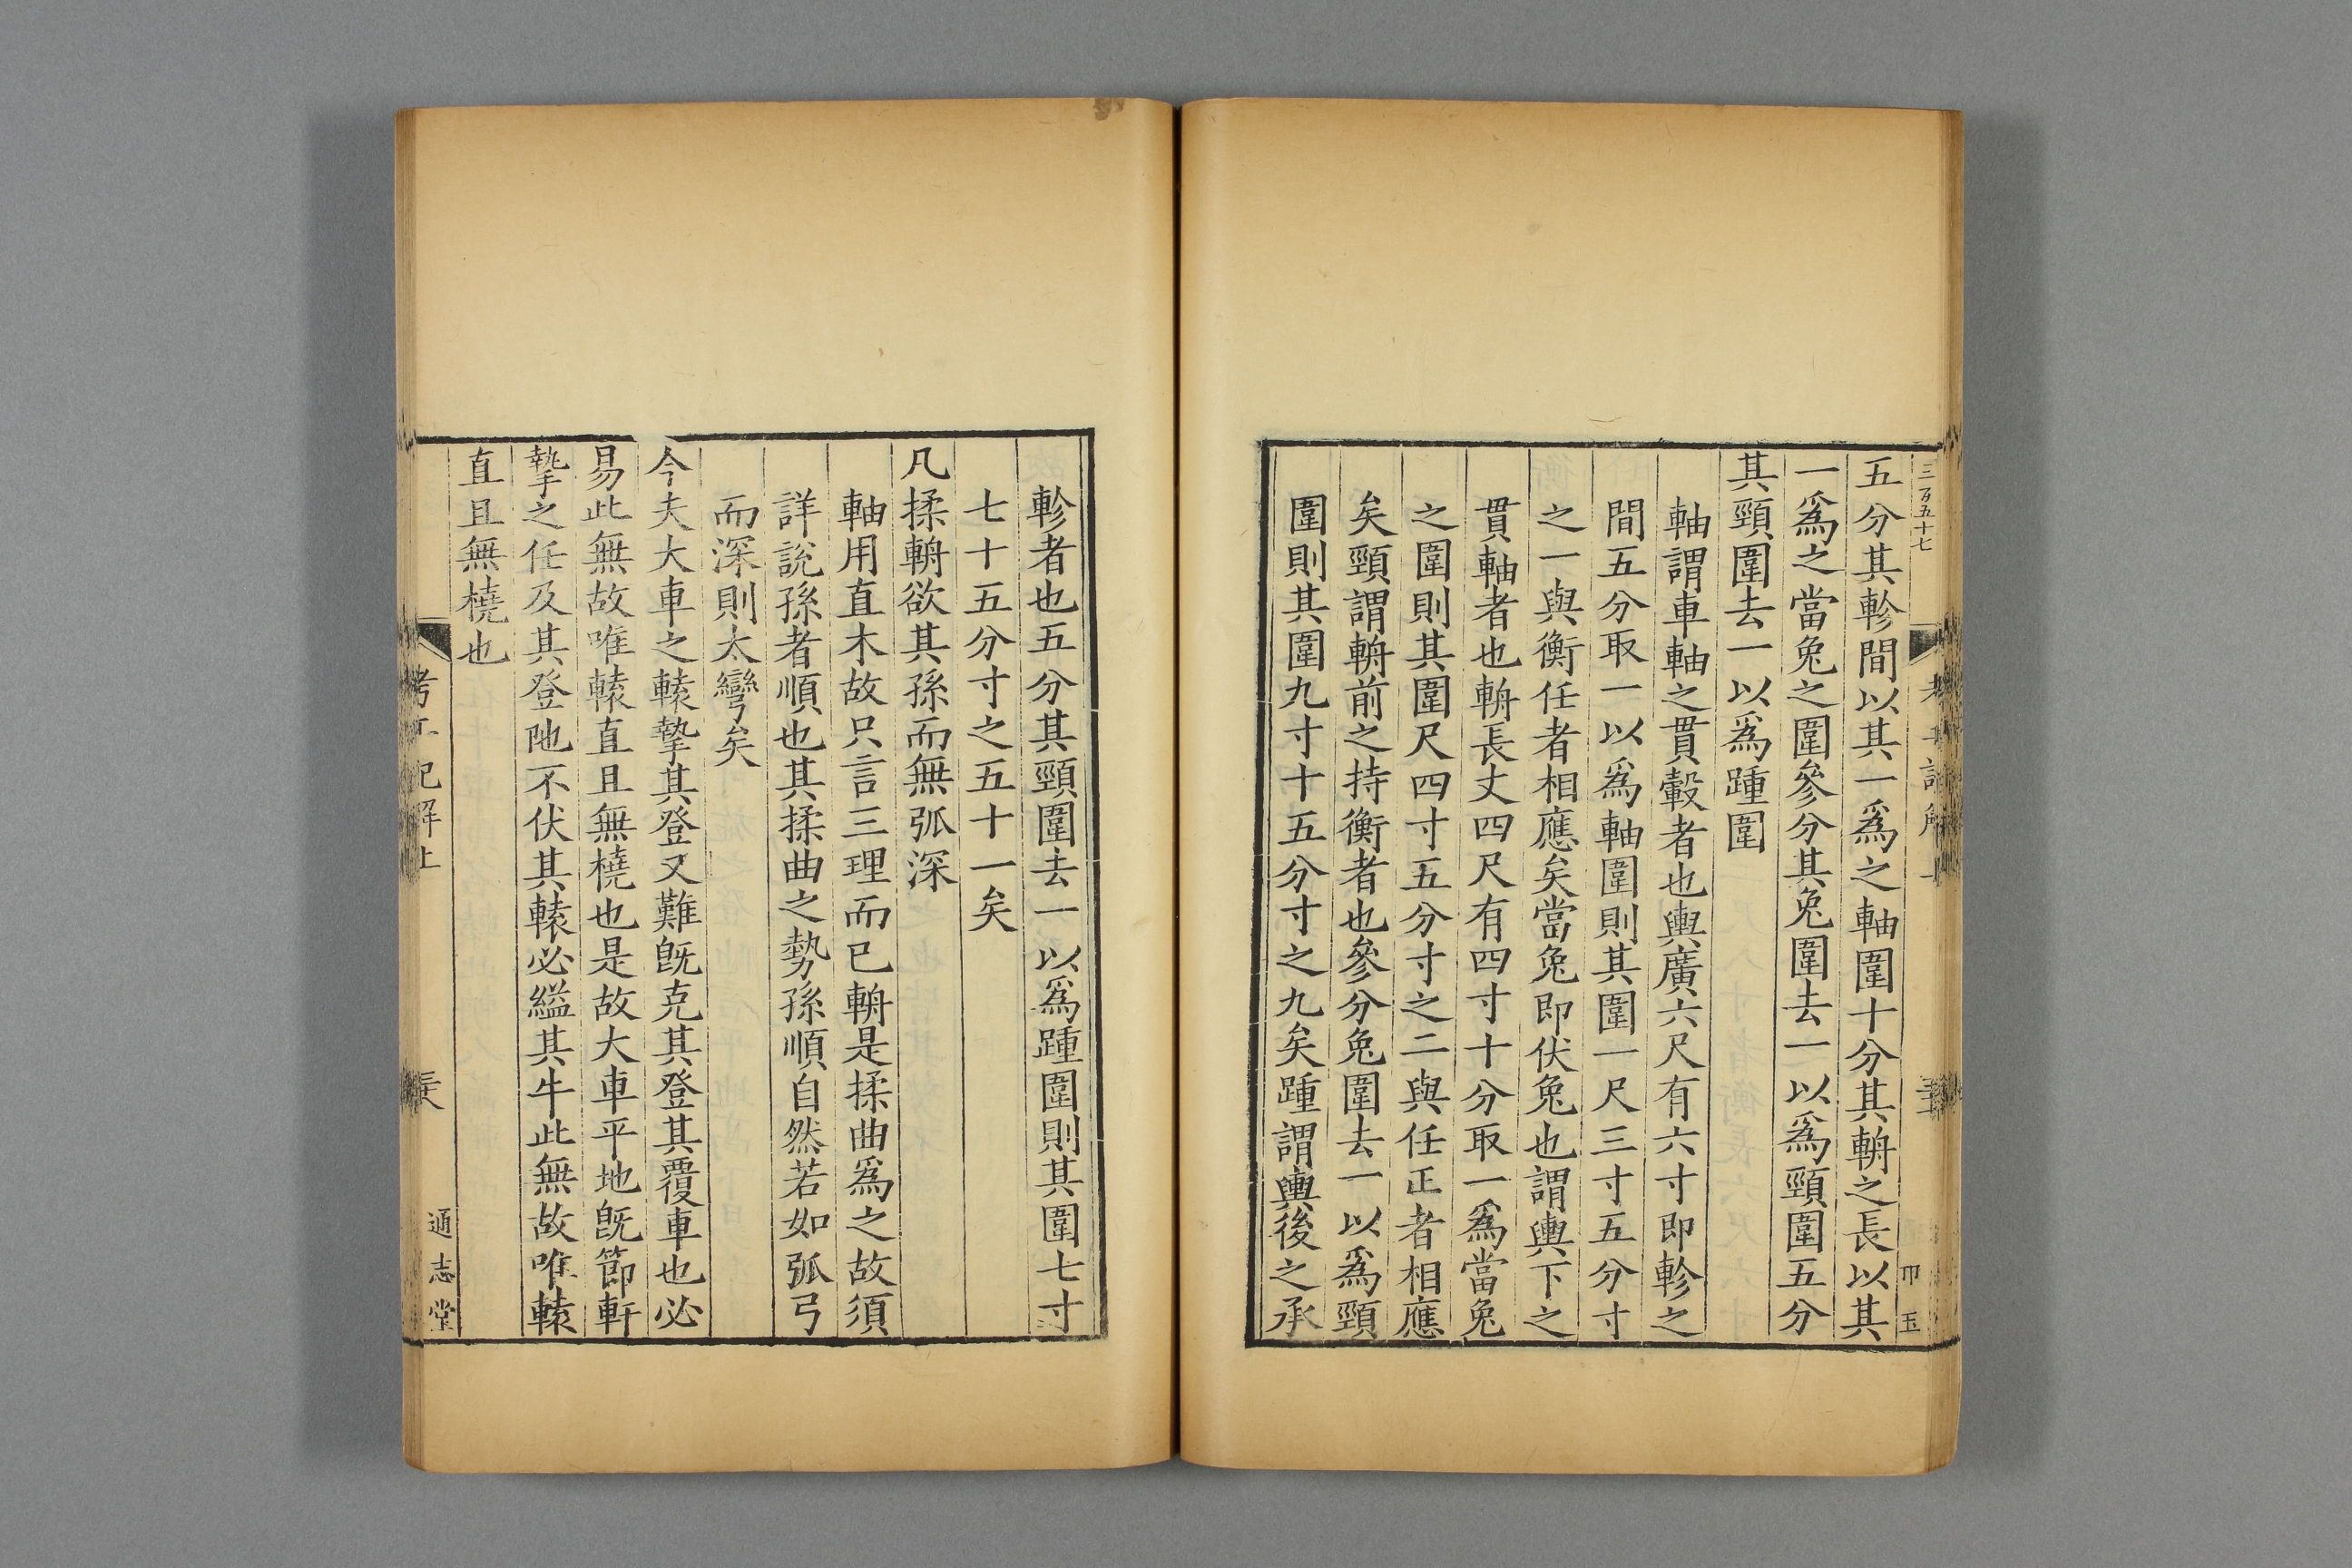 三百五十七
五分其軫間以其一爲之軸圍十分其輈之長以其
一爲之當兔之圍參分其兔圍去一以爲頸圍五分
其頸圍去一以爲踵圍
軸謂車軸之貫轂者也輿廣六尺有六寸即軫之
間五分取一以爲軸圍則其圍一尺三寸五分寸
之一與衡任者相應矣當兔即伏兔也謂輿下之
貫軸者也輈長丈四尺有四寸十分取一爲當兔
之圍則其圍尺四寸五分寸之二與任正者相應
矣頸謂輈前之持衡者也參分兔圍去一以爲頸
圍則其圍九寸十五分寸之九矣踵謂輿後之承
軫者也五分其頸圍去一以爲踵圍則其圍七寸
七十五分寸之五十一矣
凡揉輈欲其孫而無弧深
軸用直木故只言三理而已輈是揉曲爲之故須
詳說孫者順也其揉曲之勢孫順自然若如弧弓
而深則太彎矣
今夫大車之轅摯其登又難旣克其登其覆車也必
易此無故唯轅直且無橈也是故大車平地旣節軒
摯之任及其登阤不伏其轅必縊其牛此無故唯轅
直且無橈也
考工記解上
通志堂